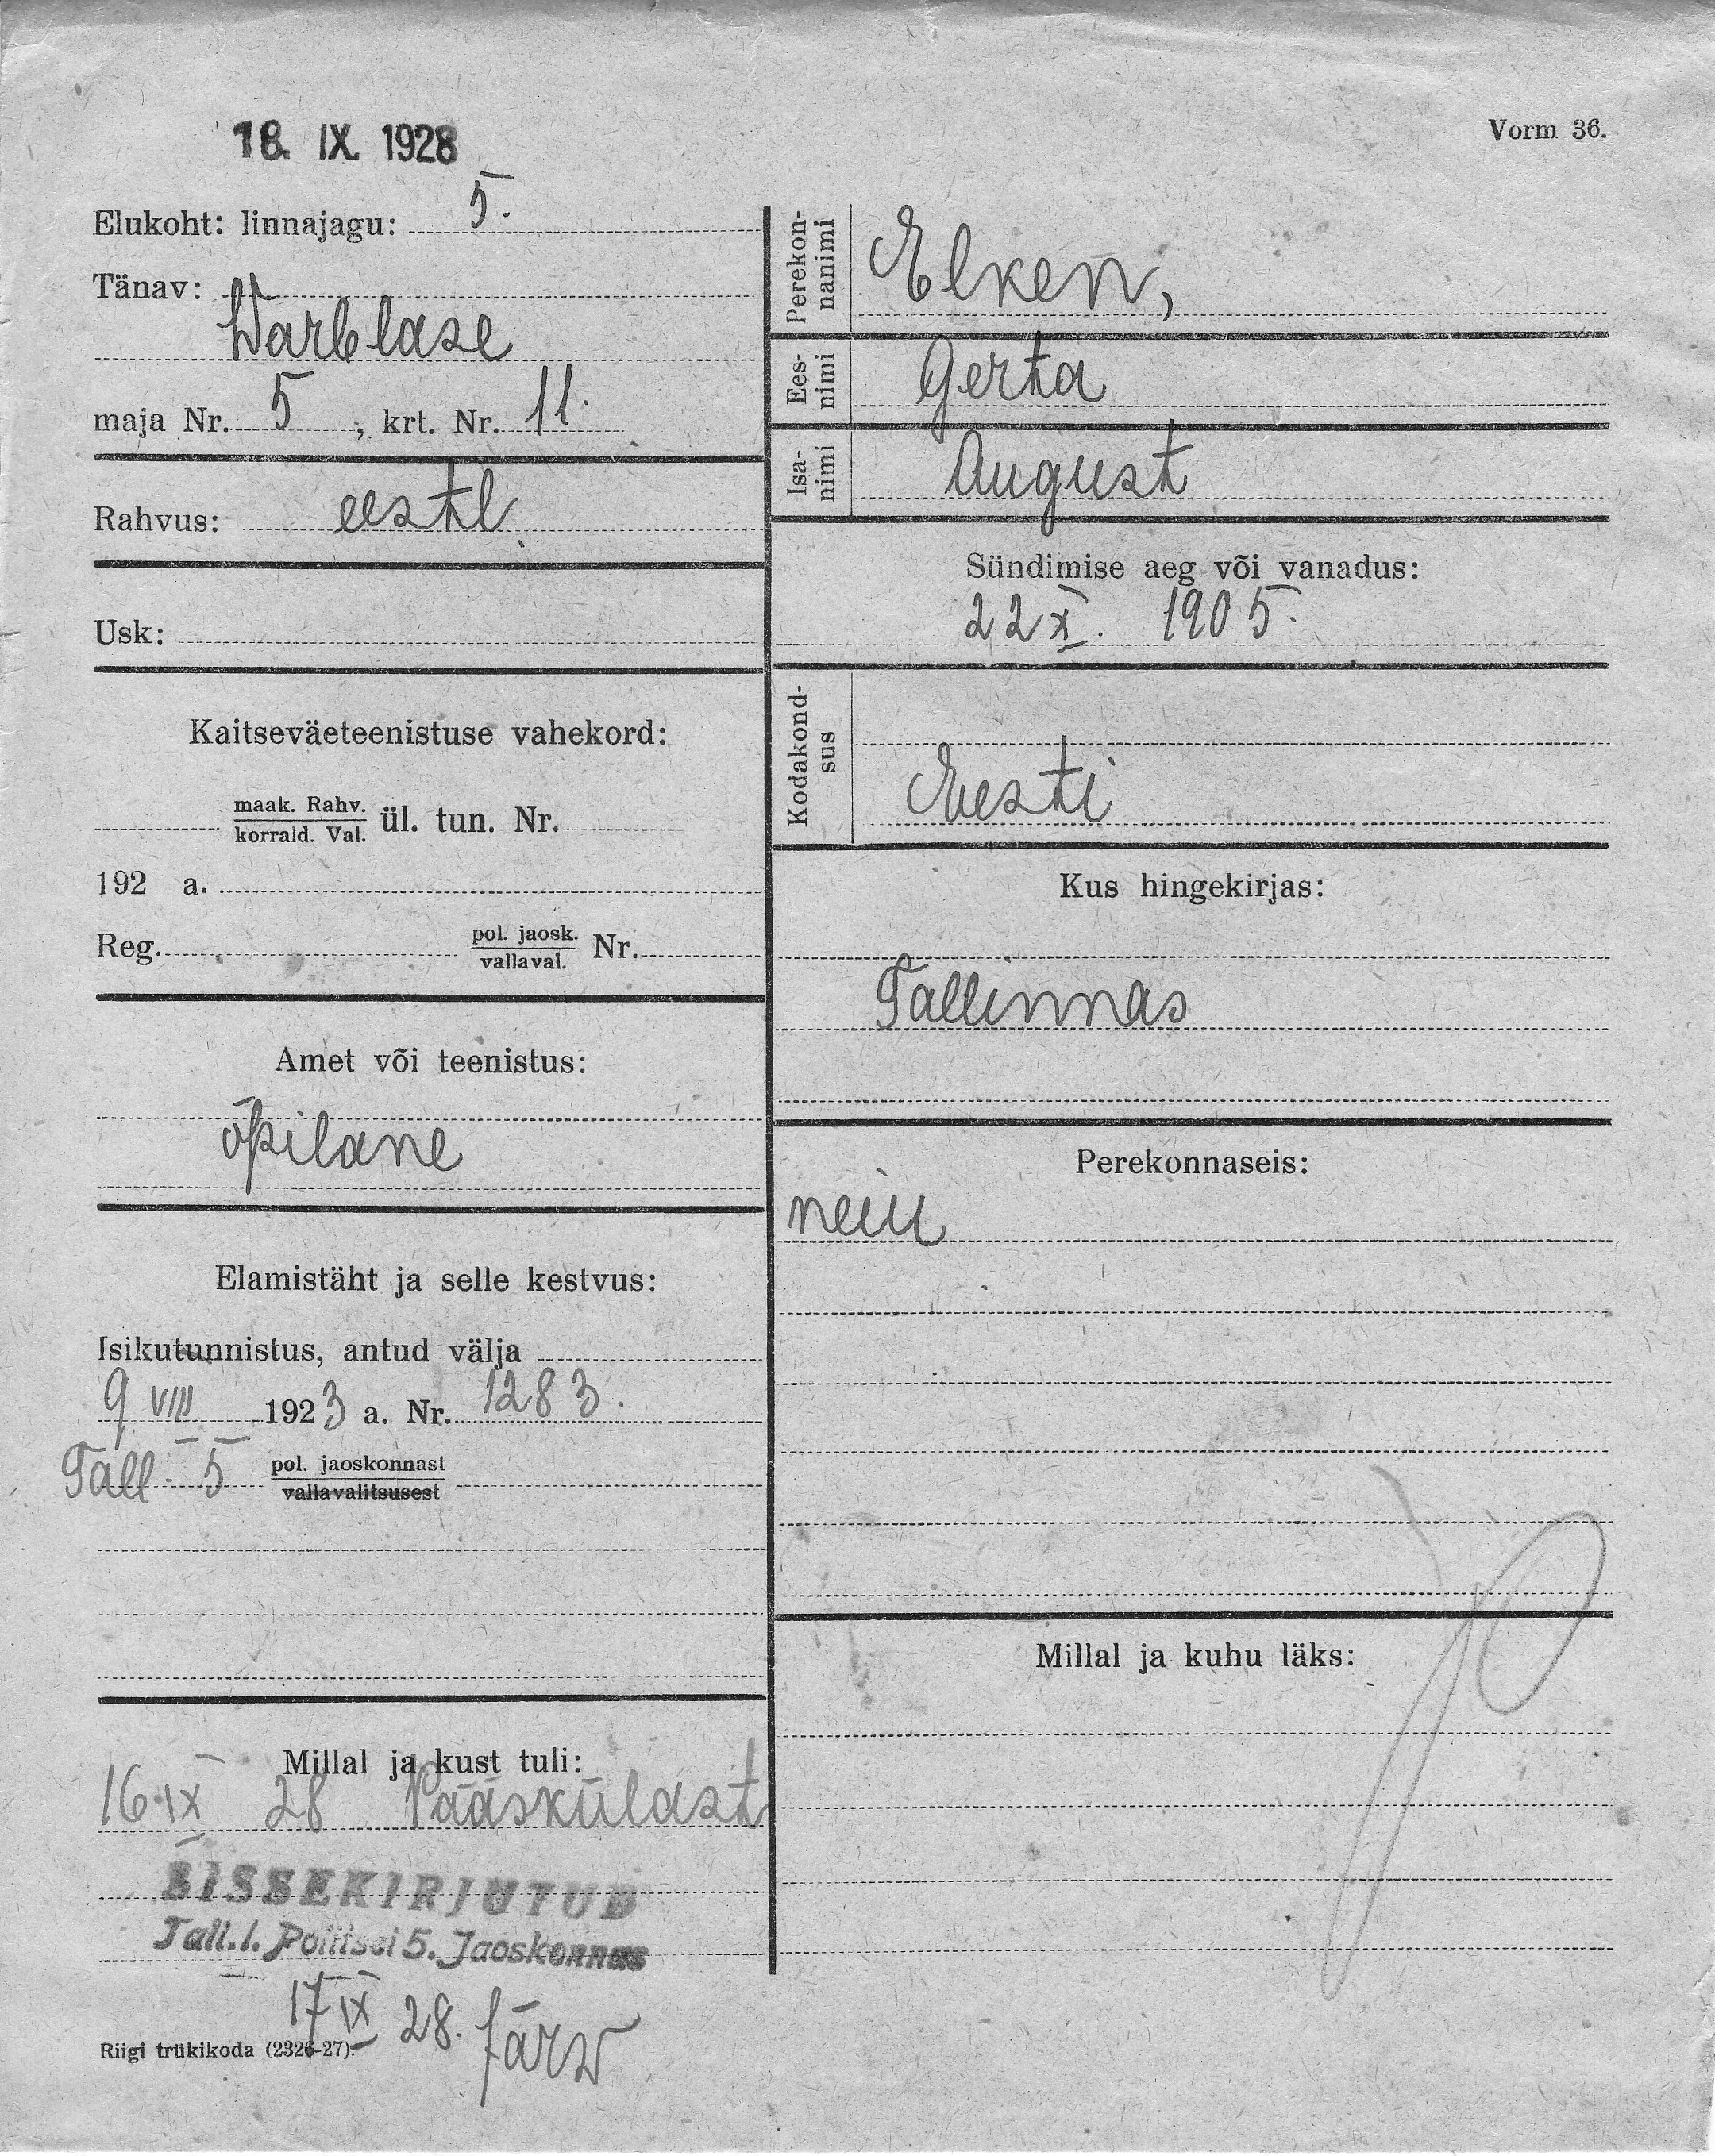 18. IX. 1928
Vorm 36.
Elukoht: linnajagu: 5.
Tänav:
Warblase
maja Nr. 5, krt. Nr. 11.
Rahvus: eestl.
Usk:
Kaitseväeteenistuse vahekord:
maak. Rahv.
korrald. Val. ül. tun. Nr.
192 a.
Reg. pol. jaosk. Nr.
vallaval.
Amet või teenistus:
õpilane
Elamistäht ja selle kestvus:
Isikutunnistus, antud välja
9 VIII 1923 a. Nr. 1283.
Tall. 5 pol. jaoskonnast
vallavalitsusest
Millal ja kust tuli:
16.IX 28 Pääskülast
SISSEKIRJUTUD
Tall. l. Politsei 5. Jaoskonnas
17 IX 28. Järw
Riigi trükikoda (2326-27).
Perekon-
nanimi
Elken,
Ees-
nimi
Gerta
Isa-
nimi
August
Sündimise aeg või vanadus:
22 X. 1905.
Kodakond-
sus
Eesti
Kus hingekirjas:
Tallinnas
Perekonnaseis:
neiu
Millal ja kuhu läks: